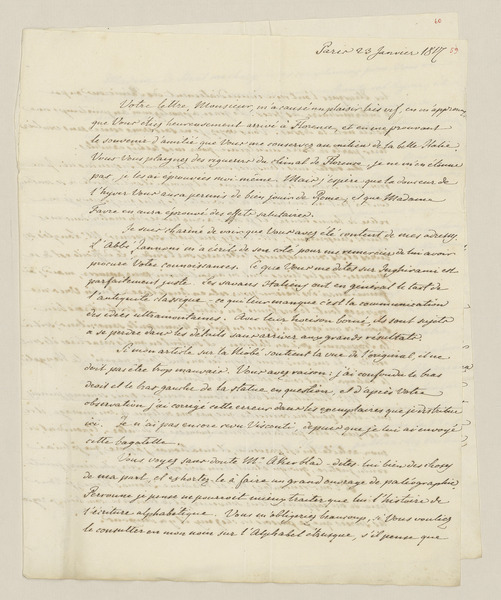 60
Paris 23 Janvier 1817. 59
Votre lettre, Monsieur, m'a causé un plaisir très vif, en m'apprenant
que Vous étiez heureusement arrivé à Florence, et en me prouvant
le souvenir d'amitié que Vous me conservez au milieu de la belle Italie.
Vous Vous plaignez des rigueurs du climat de Florence, je ne m'en étonne
pas, je les ai éprouvées moi-même. Mais j'espère que la douceur de
l'hyver Vous aura permis de bien jouir de Rome, et que Madame
Favre en aura éprouvé des effets salutaires.
Je suis charmé de voir que Vous avez été content de mes adresses.
L'Abbé Zannoni m'a écrit de son coté pour me remercier de lui avoir
procuré Votre connaissance. Ce que Vous me dites sur Inghirami est
parfaitement juste. Les savans Italiens ont en général le tact de
l'antiquité classique - ce qui leur manque c'est la communication
des idées ultramontaines. Dans leur horison borné, ils sont sujets
à se perdre dans les détails sans arriver aux grands résultats.
Si mon article sur la Niobé soutient la vue de l'original, il ne
doit pas être trop mauvais. Vous avez raison: j'ai confondu le bras
droit et le bras gauche de la statue en question, et d'après Votre
observation j'ai corrigé cette erreur dans les exemplaires que je distribue
ici. Je n'ai pas encore revu Visconti, depuis que je lui ai envoyé
cette bagatelle.
Vous voyez sans doute Mr. Akerblad - dites lui bien des choses
de ma part, et exhortez-le à faire un grand ouvrage de paléographie.
Personne je pense ne pourroit mieux traiter que lui l'histoire de
l'écriture alphabétique. Vous m'obligeriez beaucoup, si Vous vouliez
le consulter en mon nom sur l'Alphabet étrusque, s'il pense que